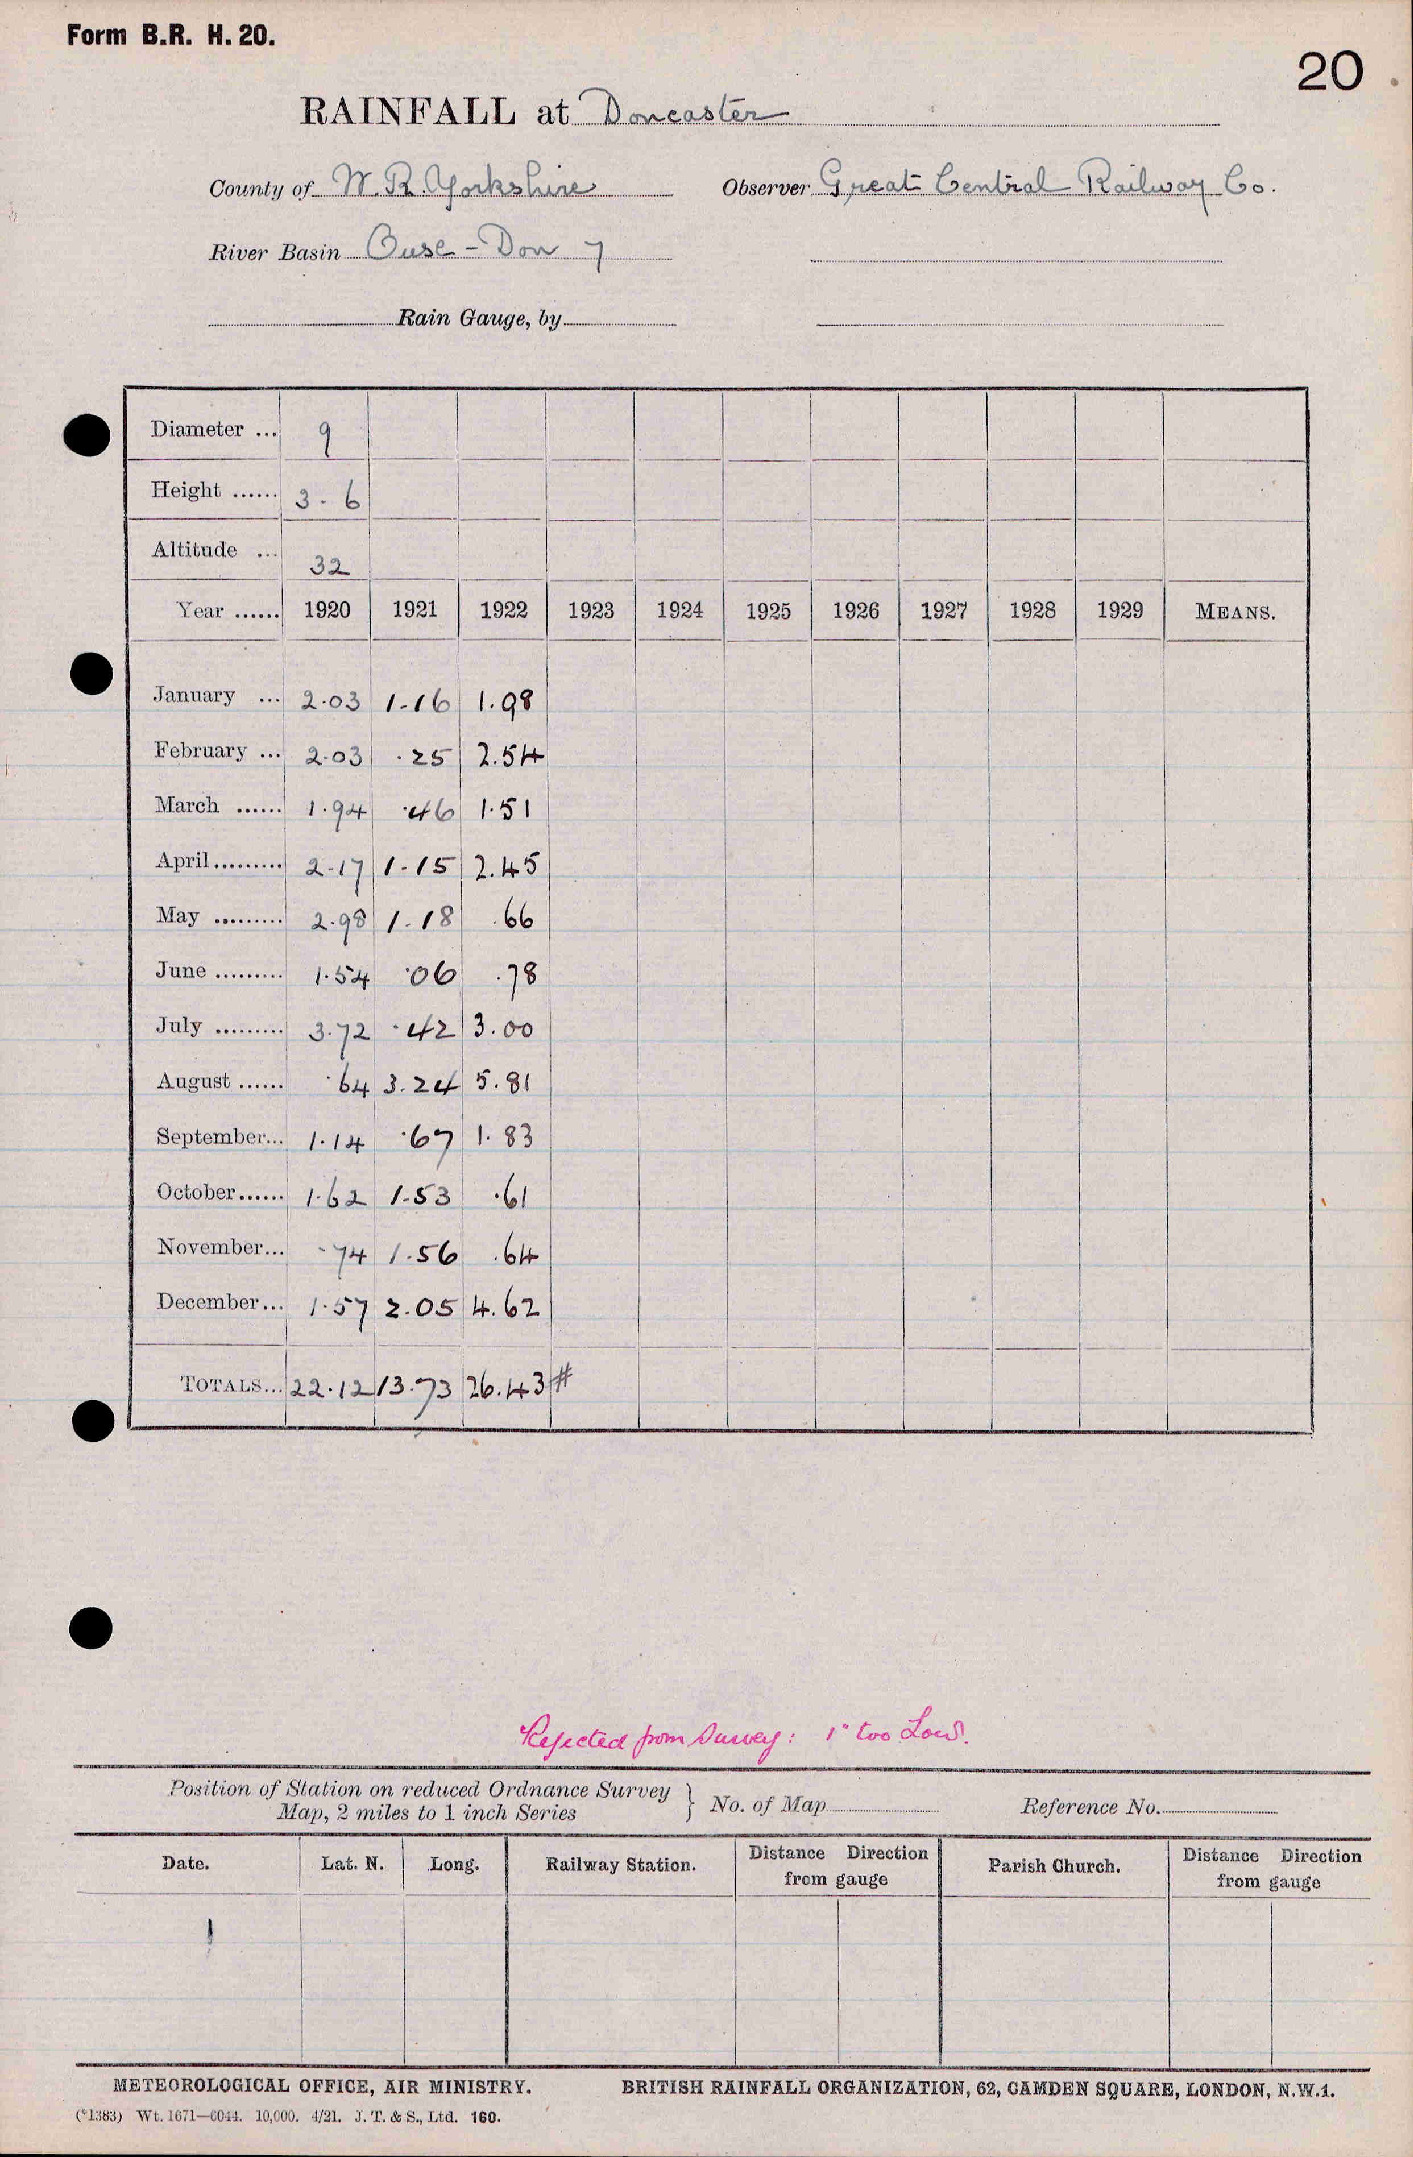 Form B.R. H. 20.
20
RAINFALL at Doncaster
County of W. R. Yorkshire Observer Great Central Railway Co.
River Basin Ouse - Don 7
Rain Gauge, by
Diameter ... 9
Height ...... 3 - 6
Altitude ... 32
Year ...... 1920 1921 1922 1923 1924 1925 1926 1927 1928 1929 MEANS.
January ... 2.03 1.16 1.98
February ... 2.03 .25 2.54
March ...... 1.94 .46 1.51
April ......... 2.17 1.15 2.45
May ......... 2.98 1.18 .66
June ......... 1.54 .06 .78
July ......... 3.72 .42 3.00
August ...... .64 3.24 5.81
September... 1.14 .67 1.83
October...... 1.62 1.53 .61
November... .74 1.56 .64
December... 1.57 2.05 4.62
TOTALS... 22.12 13.73 26.43 #
Rejected from Survey: 1" too Low.
Position of Station on reduced Ordnance Survey
Map, 2 miles to 1 inch Series } No. of Map Reference No.
Date. Lat. N. Long. Railway Station. Distance Direction from gauge Parish Church. Distance Direction from gauge
METEOROLOGICAL OFFICE, AIR MINISTRY. BRITISH RAINFALL ORGANIZATION, 62, CAMDEN SQUARE, LONDON, N.W.1.
(*1383) Wt. 1671—6044. 10,000. 4/21. J. T. & S., Ltd. 160.